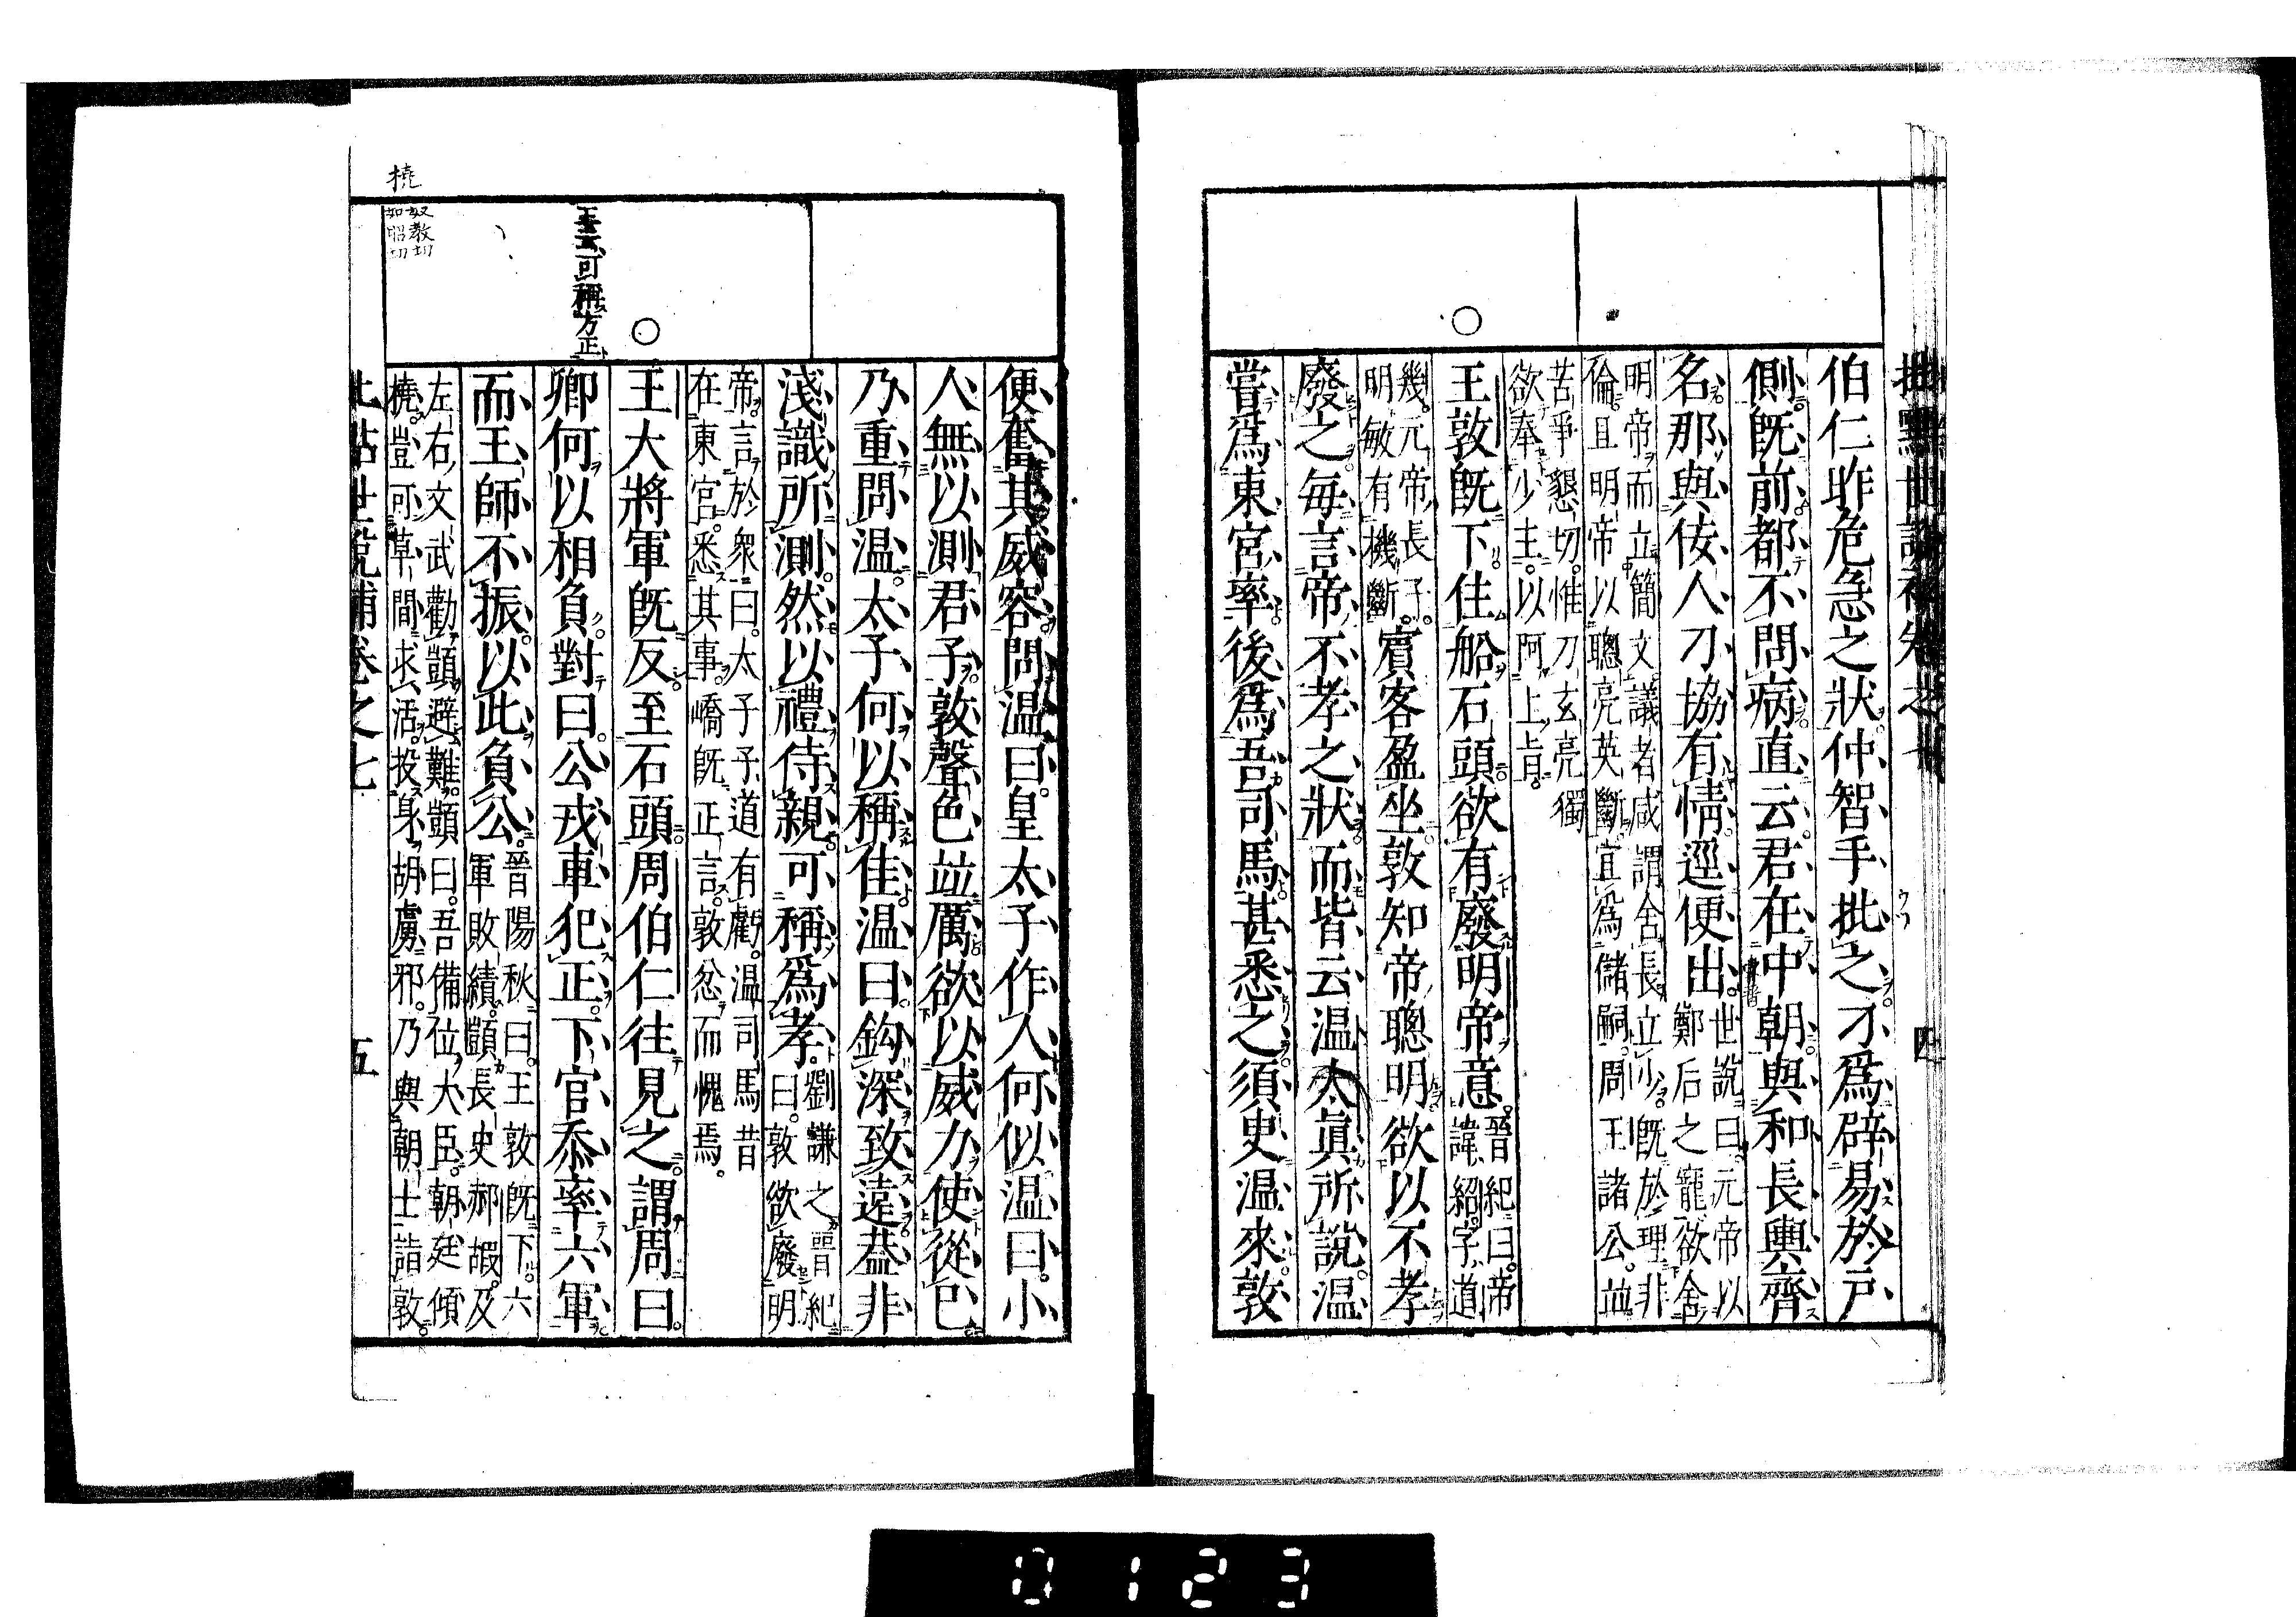 批點世說補卷之七 四
伯仁昨危急之狀。仲智手批之。才爲辟易於戶
側。旣前。都不問病。直云。君在中朝。與和長輿齊
名。那與佞人刁協有情。逕便出。世說曰。元帝以
鄭后之寵。欲舍
明帝而立簡文。議者咸謂舍長立少。旣於理非
倫。且明帝以聰亮英斷。宜爲儲嗣。周王諸公。並
苦爭懇切。惟刁玄亮獨
欲奉少主。以阿上旨。
○
王敦旣下。住船石頭。欲有廢明帝意。晉紀曰。帝
諱紹。字道
幾。元帝長子。
明敏有機斷。賓客盈坐。敦知帝聰明。欲以不孝
廢之。每言帝不孝之狀。而皆云温太眞所說。温
嘗爲東宮率。後爲吾司馬。甚悉之。須臾温來。敦
便奮其威容。問温曰。皇太子作人何似。温曰。小
人無以測君子。敦聲色竝厲。欲以威力使從己。
乃重問温。太子何以稱佳。温曰。鉤深致遠。葢非
淺識所測。然以禮侍親。可稱爲孝。劉謙之晉紀
曰。敦欲廢明
帝。言於衆曰。太子子道有虧。温司馬昔
在東宮。悉其事。嶠旣正言。敦忿而愧焉。
○
王大將軍旣反。至石頭。周伯仁往見之。謂周曰。
王云可稱方正
卿何以相負。對曰。公戎車犯正。下官忝率六軍。
而王師不振。以此負公。晉陽秋曰。王敦旣下。六
軍敗績。顗長史郝嘏。及
左右文武。勸顗避難。顗曰。吾備位大臣。朝廷傾
橈。豈可草間求活。投身胡虜邪。乃與朝士詣敦。
橈
奴教切
如昭切
批點世說補卷之七 五
0123